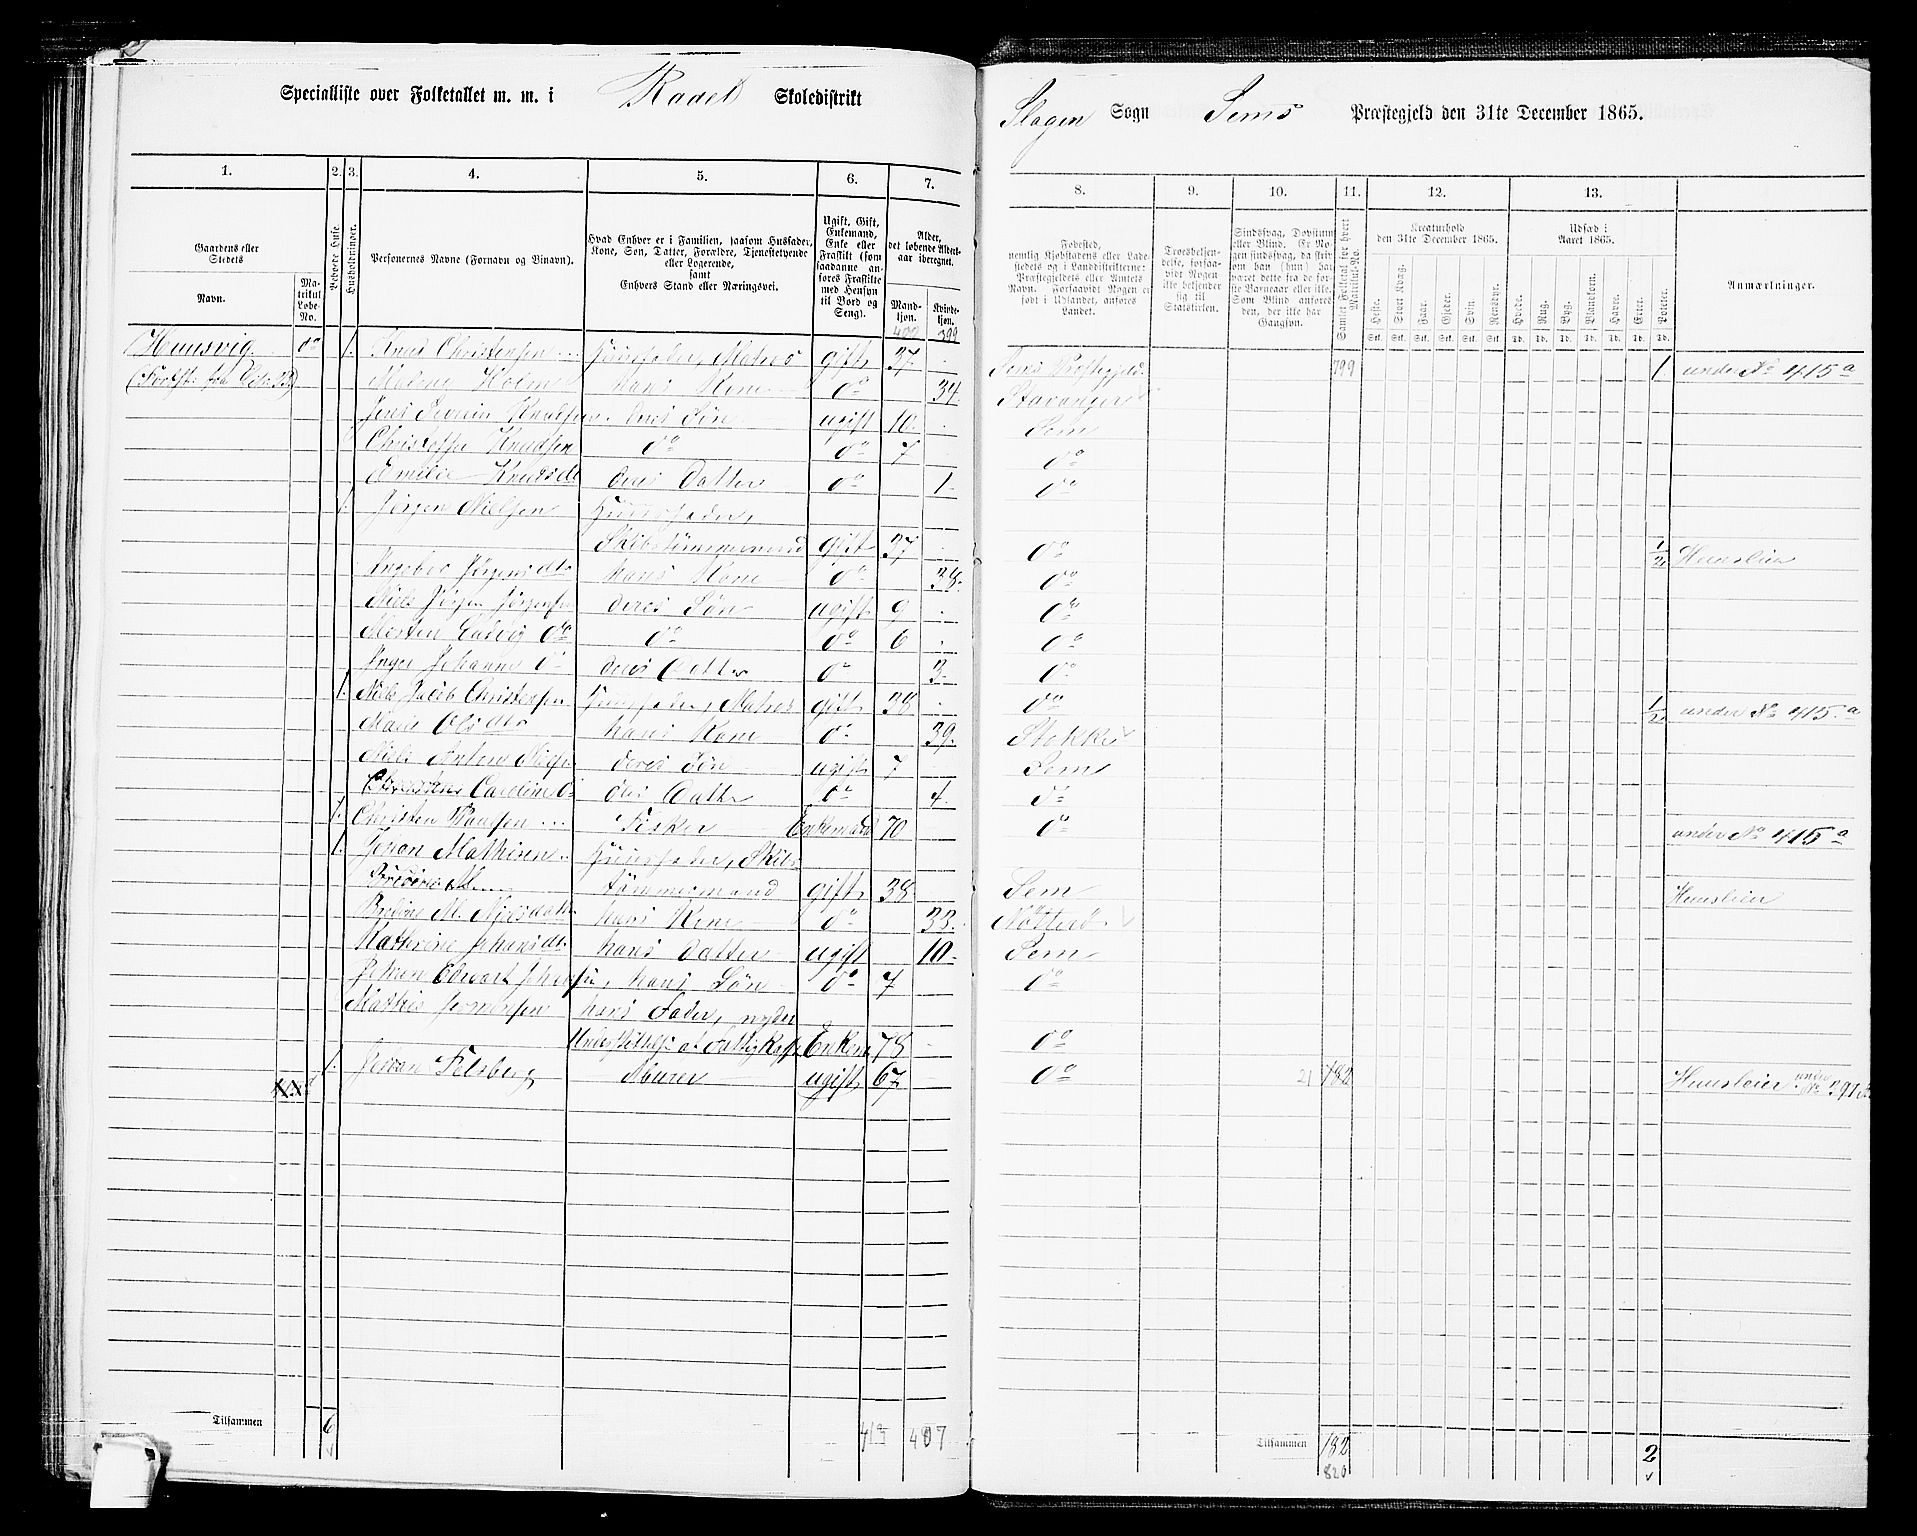 Specialliste over Folketallet m. m. i Raael Skoledistrikt
Slagen Sogn Sems Præstegjeld den 31te December 1865.
1. 2. 3. 4. 5. 6. 7.
8. 9. 10. 11. 12. 13.
Gaardens eller Stedets
Navn.
Matrikul Løbe-No.
Beboede Huse.
Husholdninger.
Personernes Navne (Fornavn og Binavn).
Hvad Enhver er i Familien, saasom Husfader,
Kone, Søn, Datter, Forældre, Tjenestetyende
eller Logerende,
samt
Enhvers Stand eller Næringsvei.
Ugift, Gift,
Enkemand,
Enke eller
Fraskilt (som
saadanne anføres
Fraskilte
med Hensyn
til Bord og
Seng).
Alder,
det løbende Alders-
aar iberegnet.
Mandkjøn.
Kvindekjøn.
400 399
Fødested,
nemlig Kjøbstadens eller Ladestedets
og i Landdistrikterne:
Præstegjeldets eller Amtets
Navn. Forsaavidt Nogen er
født i Udlandet, anføres
Landet.
Troesbekjendelse,
forsaavidt
Nogen
ikke bekjender
sig til
Statskirken.
Sindssvag, Døvstum
eller Blind. Er Nogen
sindssvag, da skrives
om han (hun) har
været dette fra første
Barneaar eller ikke.
Som Blind anføres
den, der ikke har
Gangsyn.
Samlet Folketal for hvert Matrikul-No.
Kreaturhold
den 31te December 1865.
Heste. Stort Kvæg. Faar. Gjeder. Svin. Rensdyr.
Stk. Stk. Stk. Stk. Stk. Stk.
Udsæd i
Aaret 1865.
Hvede. Rug. Byg. Blandkorn. Havre. Erter. Poteter.
Td. Td. Td. Td. Td. Td. Td.
Anmærkninger.
Huusvig do 1. Knud Christensen Huusfader, Matros gift 37 Sems Præstegjeld. 799 1 under No 415 a
(Fortst. fra Side 23) Malene Holm hans Kone do 34. Stavanger
Jens Severin Knudsen deres Søn ugift 10. Sem
Christoffer Knudsen do do 7 do
Emilie Knudsdt deres Datter do 1. do
1. Jørgen Nielsen Huusfader,
Skibstømmermand gift 37 do 1/2 Huusleier
Ingebor Jørgensdtr hans Kone do 38. do
Niels Jørgen Jørgensen deres Søn ugift 9 do
Morten Ludvig do do do 6 do
Inger Johanne do deres Datter do 3. do
1. Niels Jacob Christensen Huusfader, Matros gift 38 do 1/2 under No 415 a
Maren Olsdtr hans Kone do 39. Stokke
Niels Anton Nielsen deres Søn ugift 7 Sem
Caroline do deres Datter do 4. do
1. Christen Paulsen Fisker Enkemand 70 do under No 415 a
1. Johan Mathisen Huusfader, Skibs
tømmermand gift 38 Sem Huusleier
M. Nielsdatt. hans Kone do 33. Nøtterø
Kathrine Johansdt. hans Datter ugift 10. Sem
Johan Edvart Johansen, hans Søn do 7 do
Mathis hans Fader, nyder
Understøttelse af Fattigkassen Enkem. 78 do
1. Johan Felsberg Murer ugift 67 do 21 182 Huusleier under No 391
Tilsammen 6 413 407
Tilsammen 182 2
820